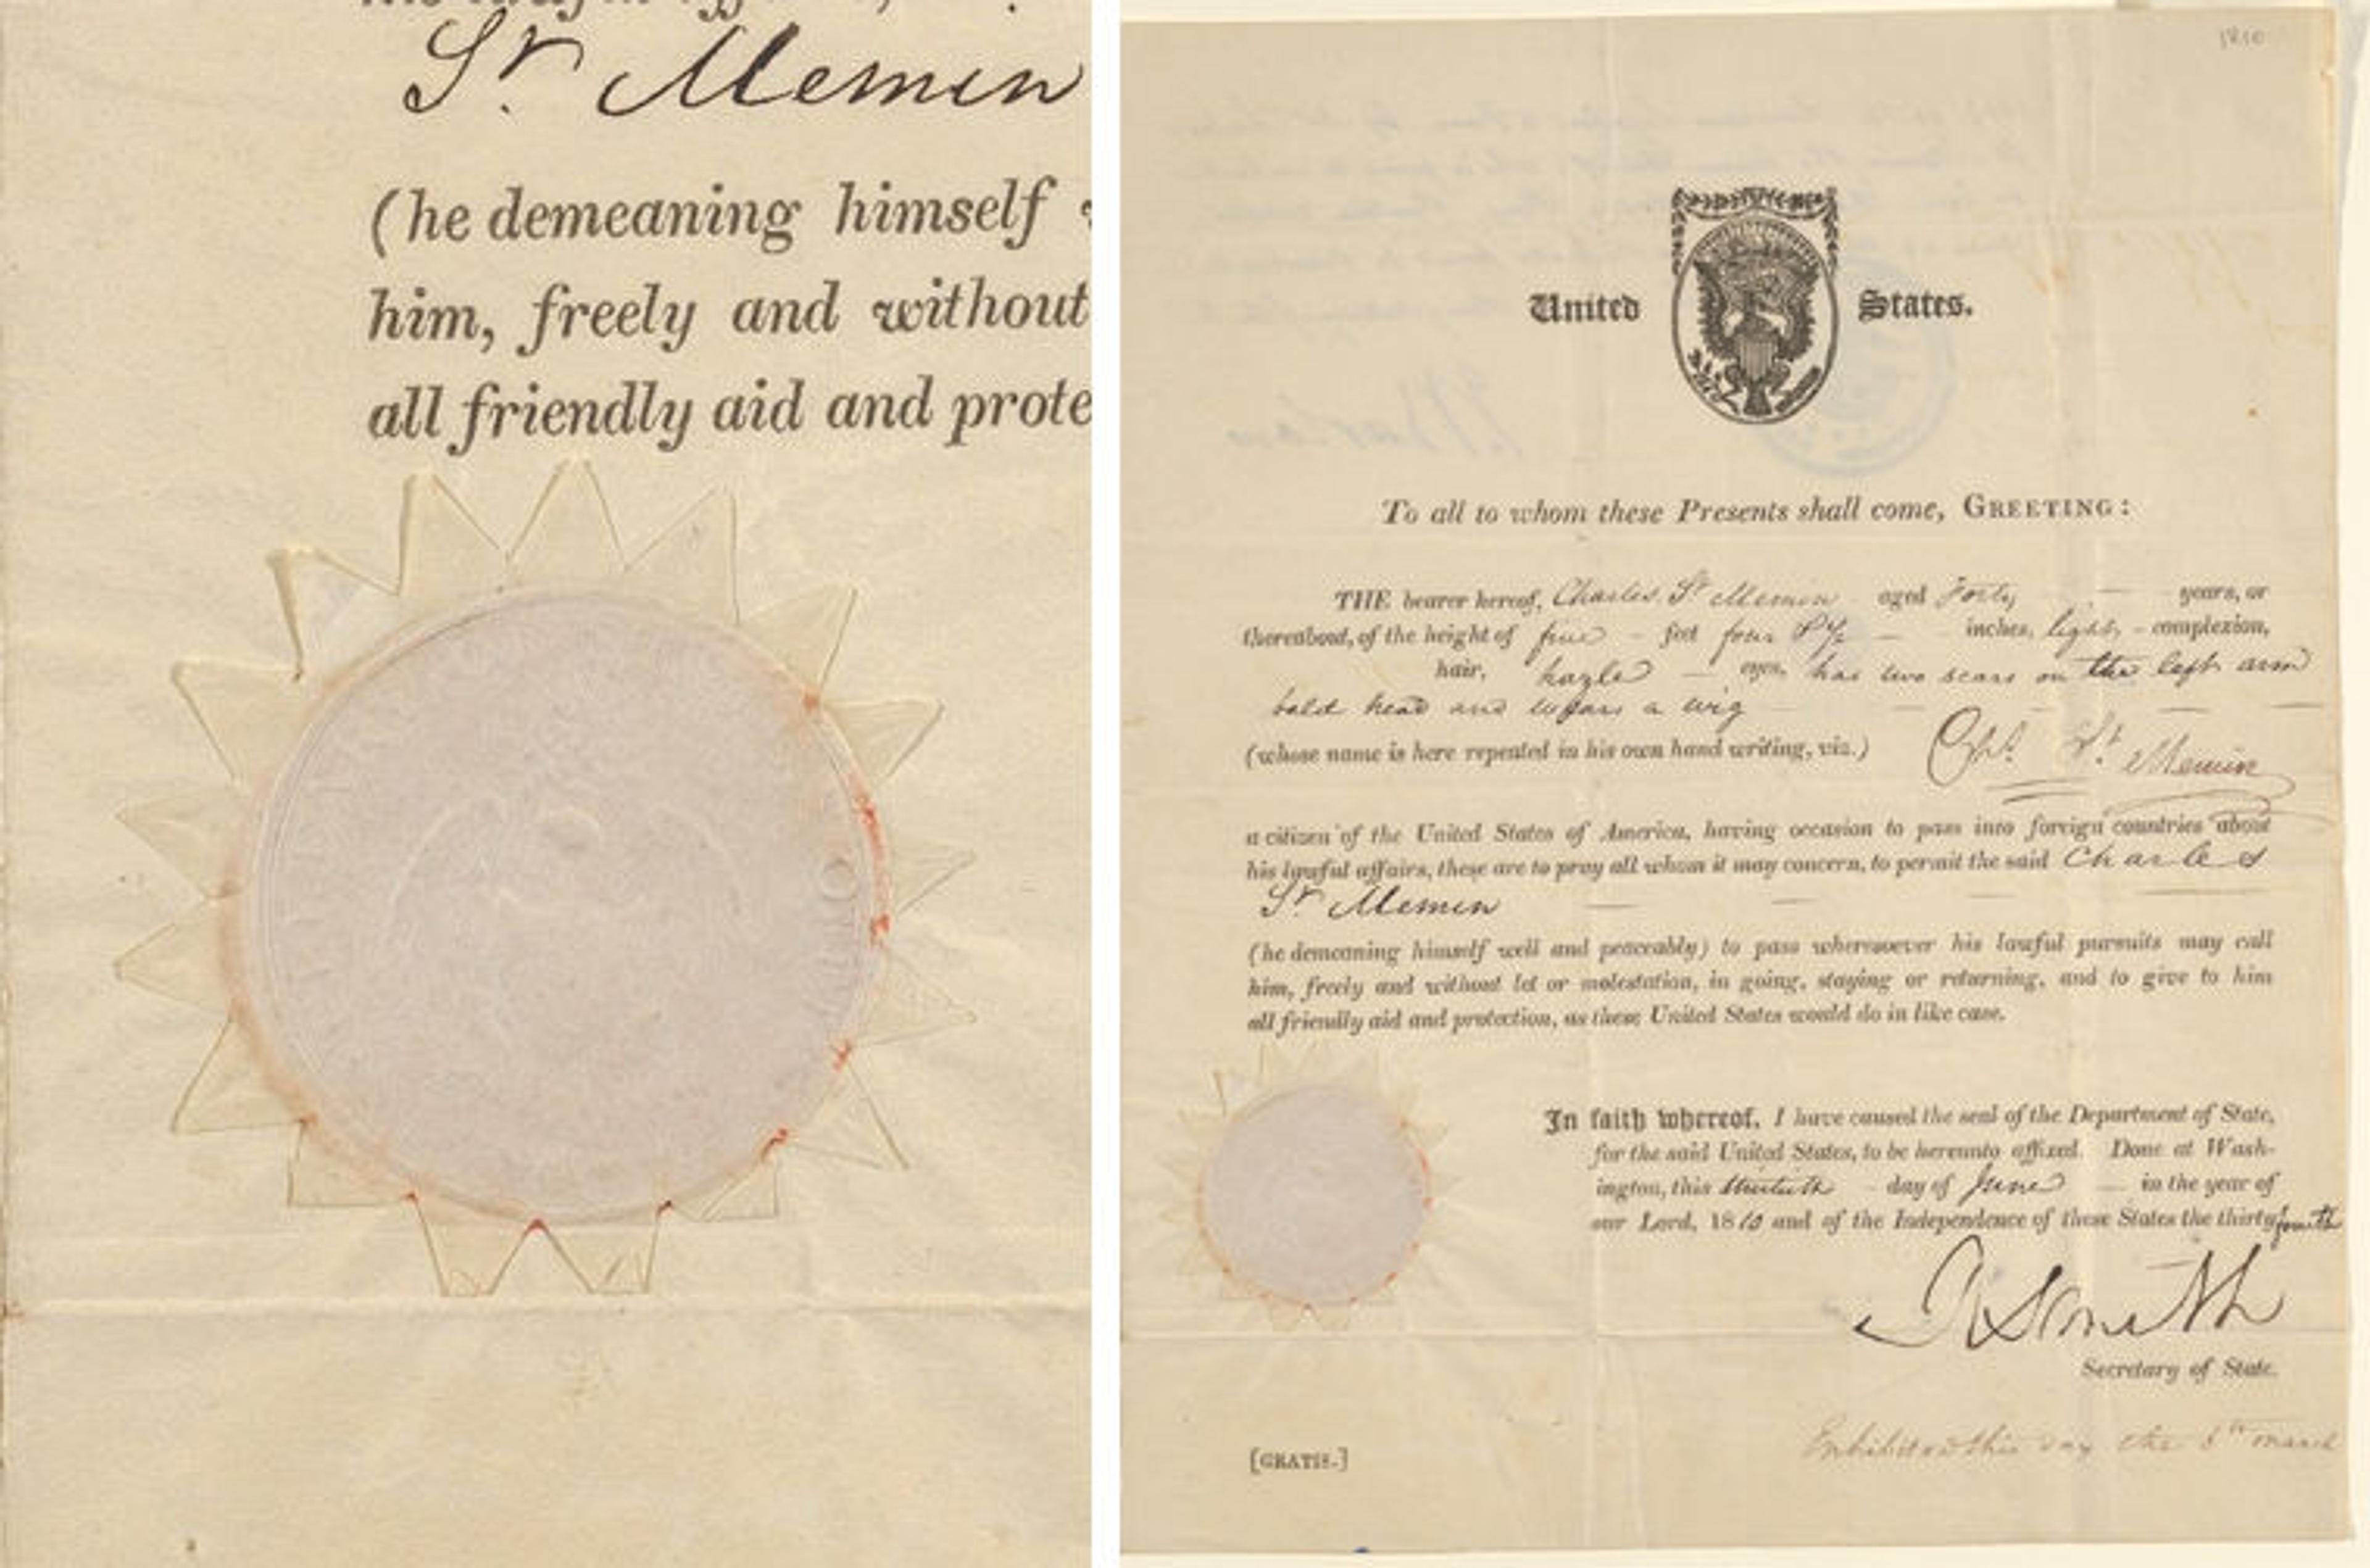 St. Memin
(he demeaning himself
him, freely and without
all friendly aid and prote
1810
United States.
To all to whom these Presents shall come, GREETING:
THE bearer hereof, Charles St Memin aged Forty years, or
thereabout, of the height of five feet four & ½ inches, light complexion,
hair, hazle eyes, has two scars on the left arm
bald head and wears a wig
(whose name is here repeated in his own hand writing, viz.) Chs. St. Memin
a citizen of the United States of America, having occasion to pass into foreign countries about
his lawful affairs, these are to pray all whom it may concern, to permit the said Charles
St. Memin
(he demeaning himself well and peaceably) to pass wheresoever his lawful pursuits may call
him, freely and without let or molestation, in going, staying or returning, and to give to him
all friendly aid and protection, as these United States would do in like case.
In faith whereof, I have caused the seal of the Department of State,
for the said United States, to be hereunto affixed. Done at Wash-
ington, this day of June in the year of
our Lord, 1810 and of the Independence of these States the thirty fourth
R Smith
Secretary of State.
Exhibited this day the 8th march
[GRATIS.]